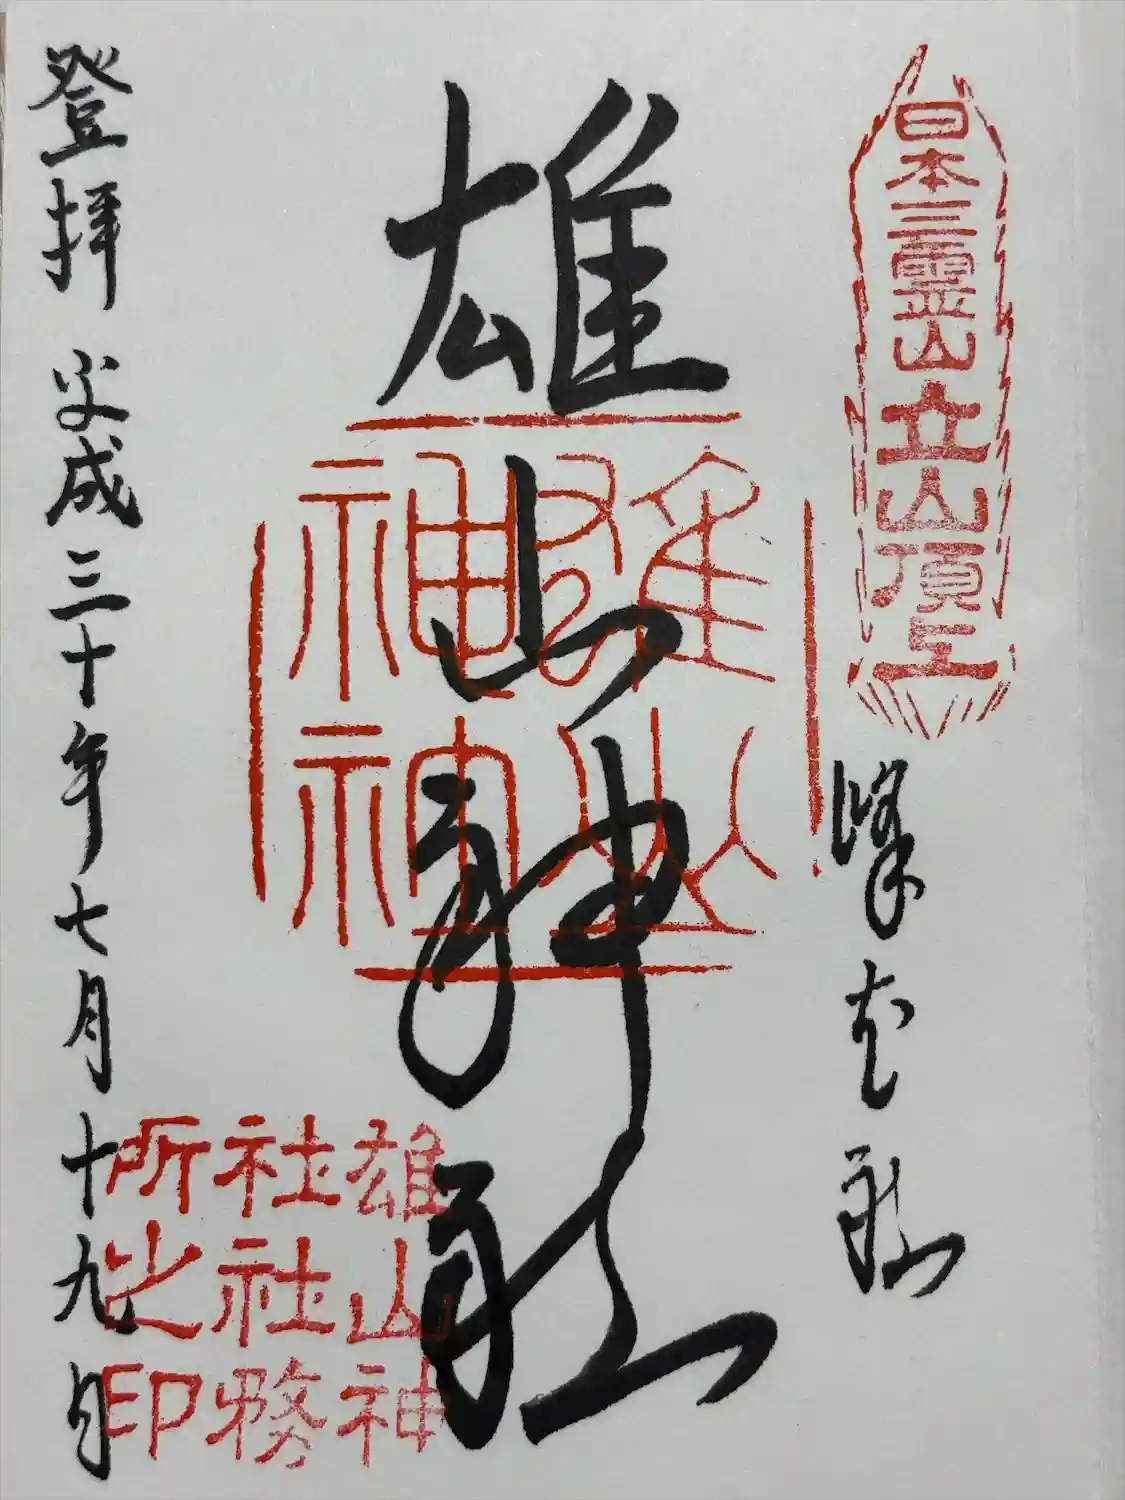 日本三霊山立山頂上
峰本社
雄山神社
雄山
神
雄山神
社社務
所之印
登拝 平成三十年七月十九日